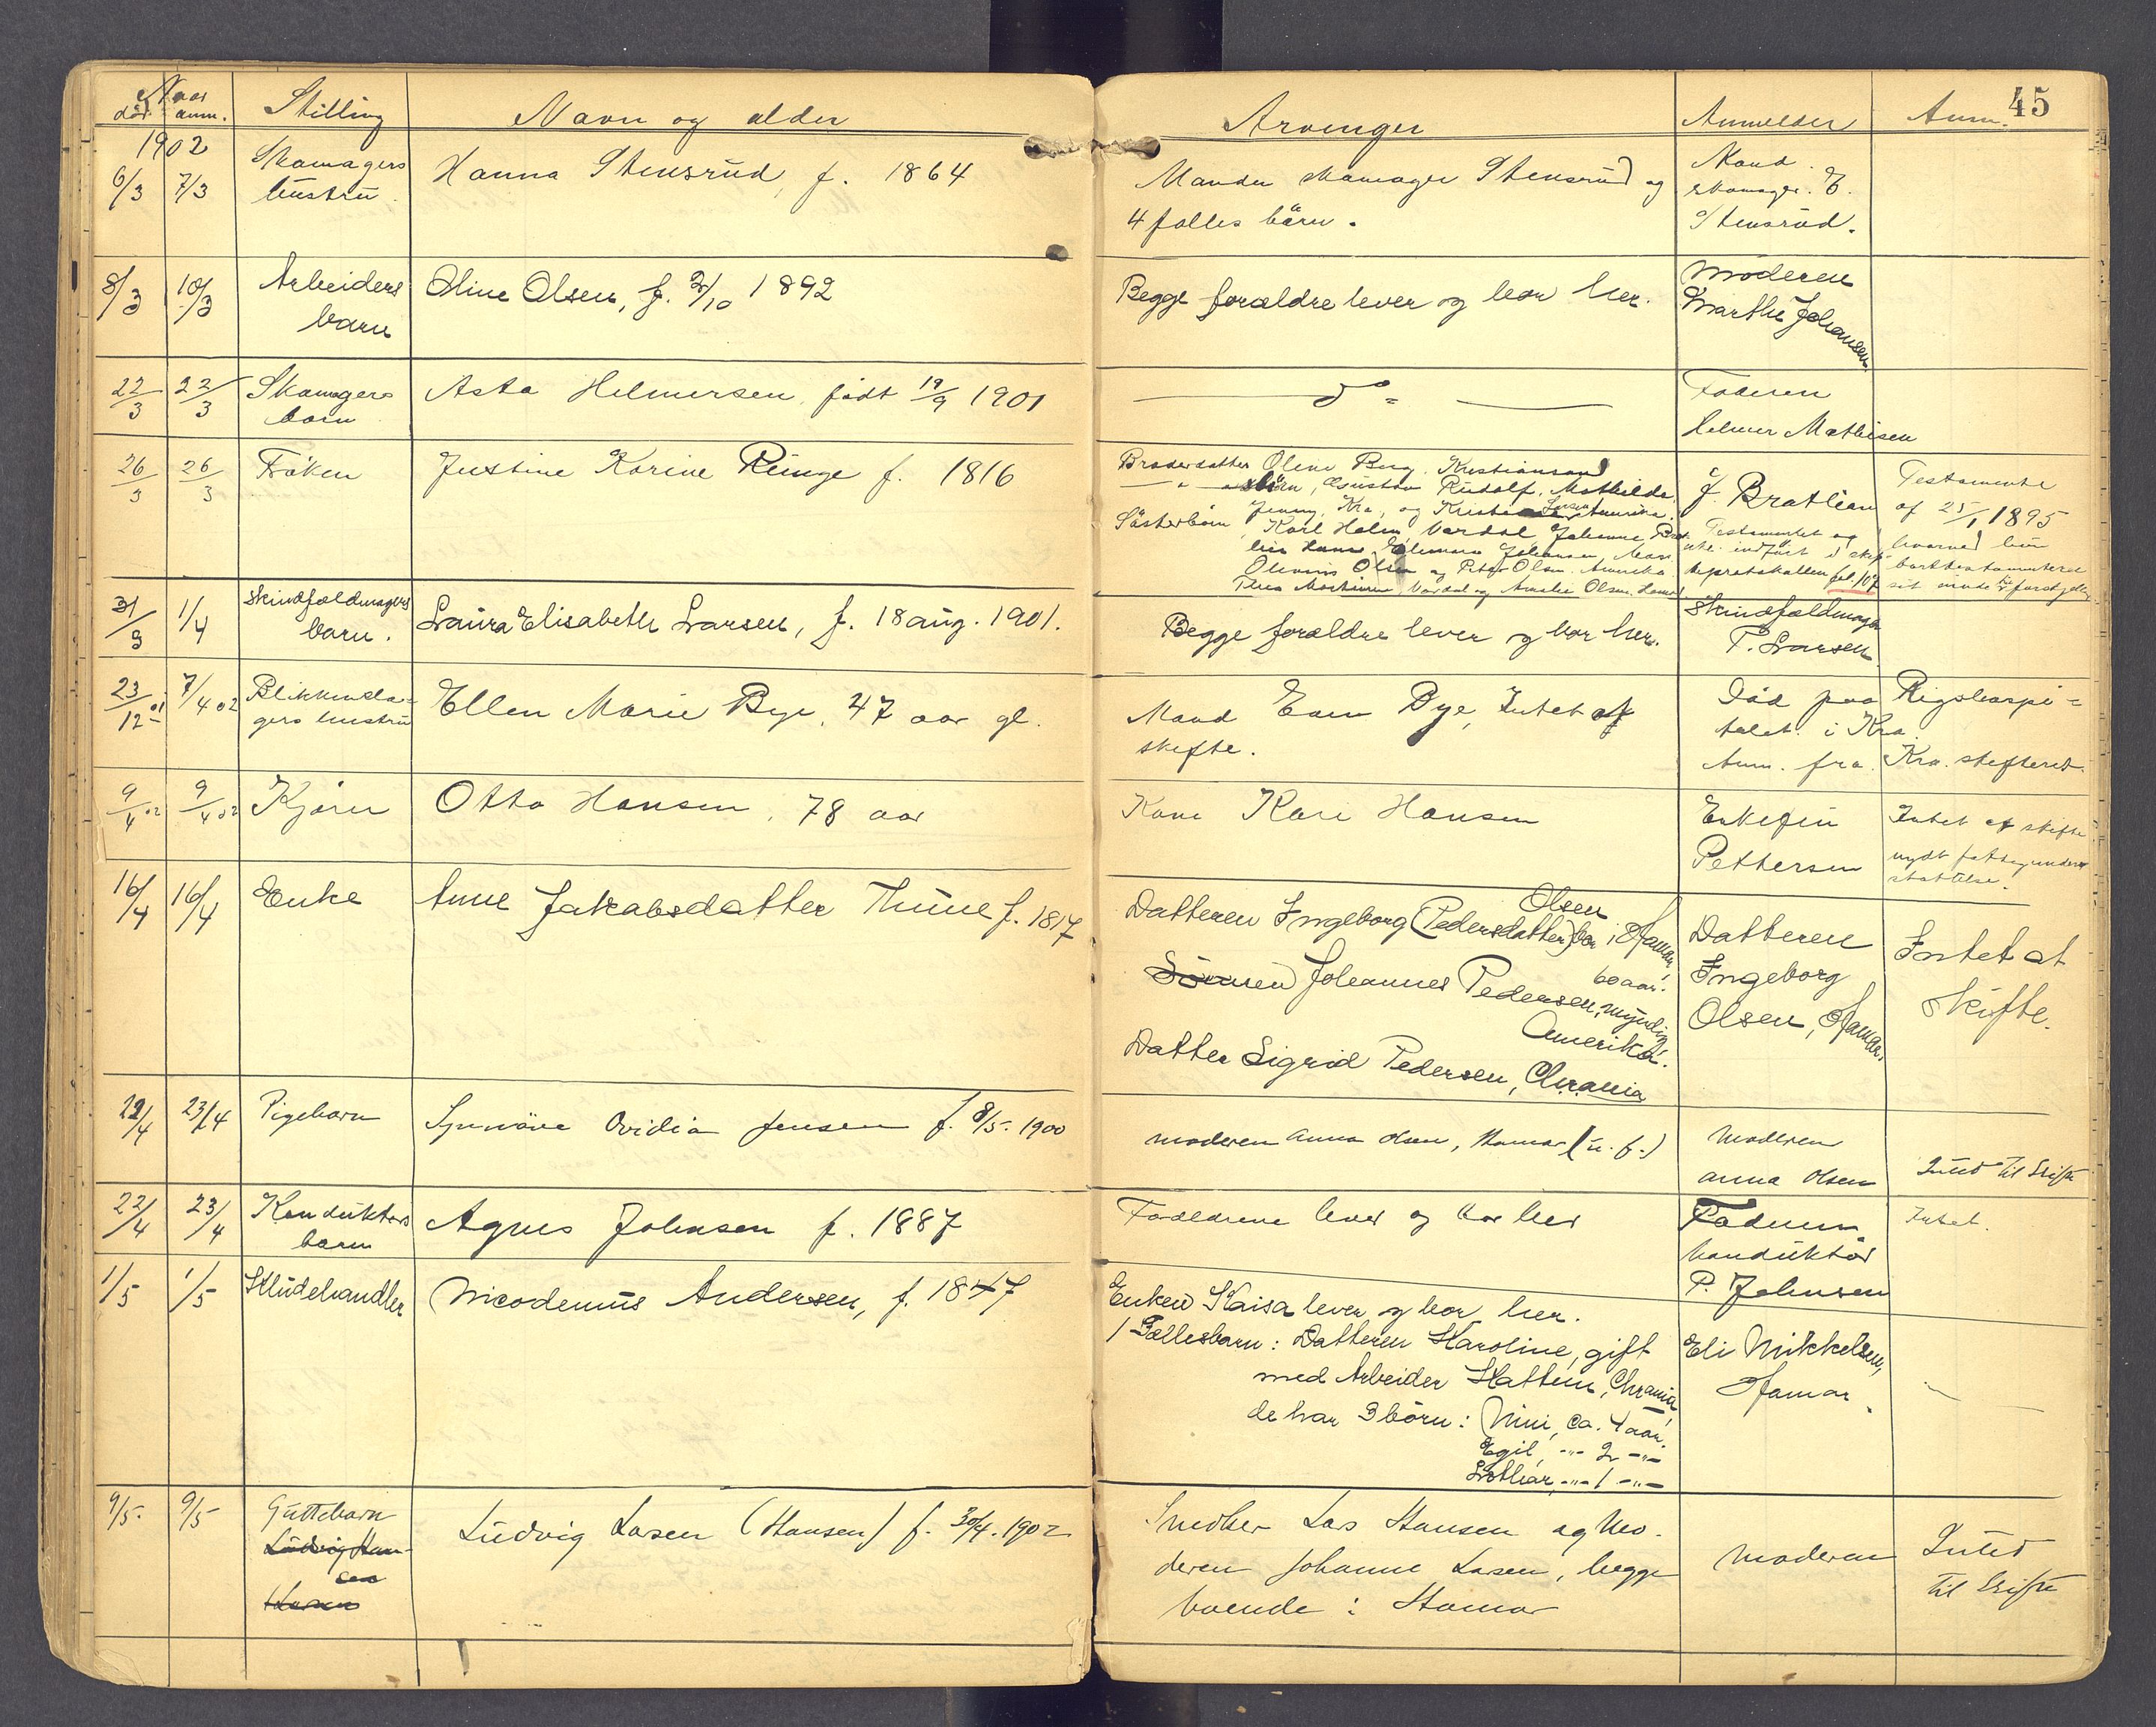 45
Naar
död. anm. Stilling Navn og alder Arvinger Anmelder Anm.
1902
6/3 7/3 Skomagers
hustru
Hanna Stensrud, f. 1864
Manden skomager Stensrud og
4 fælles børn.
Mand
skomager E.
Stensrud.
8/3 10/3 Arbeiders
barn
Oline Olsen, f. 2/10 1892
Begge forældre lever og bor her.
Moderen
Marthe Johansen
22/3 22/3 Skomagers
barn
Asta Helmersen født 19/9 1901
d° =
Faderen
Helmer Mathisen
26/3 26/3 Frøken
Justine Karine Runge f. 1816
Broderdatter Oline Berg, Kristiansand
— " — børn, Gustav Rudolf, Mathilde,
Jenny, Kra., og Amerika.
Søsterbørn Karl Holm, Vardal, Johanne
Johansen,
Olsen og Peter Olsen Amerika
Vardal og Amalie Olsen
J. Bratlien
Testamentet og
indført i skif-
teprotokollen fol. 107
Testamente
af 25/1 1895
hvorved hun
borttestamenterer
sit
31/3 1/4 Skindfældmagers
barn.
Laura Elisabeth Larsen, f. 18 aug. 1901.
Begge forældre lever og bor her.
Skindfældmager
P. Larsen
23/12 01 7/4 02 Blikkensla-
gers hustru
Ellen Marie Bye, 47 aar gl.
Mand Even Bye, Intet at
skifte.
Død paa Rigshospi=
talet i Kra.
Anm. fra Kra. skifteret.
9/4 02 9/4 02 Kjører
Otto Hansen, 78 aar
Kone Kari Hansen
Enkefru
Pettersen
Intet at skifte
nydt fattigunder
støttelse.
16/4 16/4 Enke
Anne Jakobsdatter Thune f. 1817
Olsen
Datteren Ingeborg (Pedersdatter) bor i Hamar,
60 aar.
Sønnen Johannes Pedersen, myndig
Amerika.
Datter Sigrid Pedersen, Chrania
Datteren
Ingeborg
Olsen, Hamar.
Intet at
skifte.
22/4 23/4 Pigebarn
Synnöve Ovidia Jensen f. 8/5. 1900
moderen Anna Olsen, Hamar (u. f.)
Moderen
Anna Olsen
Intet til Skifte
22/4 23/4 Konduktørs
barn
Agnes Johnsen f. 1887
Forældrene lever og bor her
Faderen
konduktør
P. Johnsen
Intet.
1/5 1/5 Kludehandler
Nicodemus Andersen, f. 1847
Enken Kaisa lever og bor her.
1 Fællesbarn: Datteren Karoline, gift
med Arbeider Hattum, Chrania
de har 3 børn: Nini, ca. 4 aar.
Egil, -"- 2 -"-
Lothar, -"- 1 -"-
Eli Mikkelsen,
Hamar.
9/5. 9/5 Guttebarn
Ludvig Han-
sen
Larsen
Ludvig Lasen (Hansen) f. 30/4. 1902
Snedker Lars Hansen og Mo-
deren Johanne Lasen, begge
boende i Hamar
Moderen
Intet
til Skifte